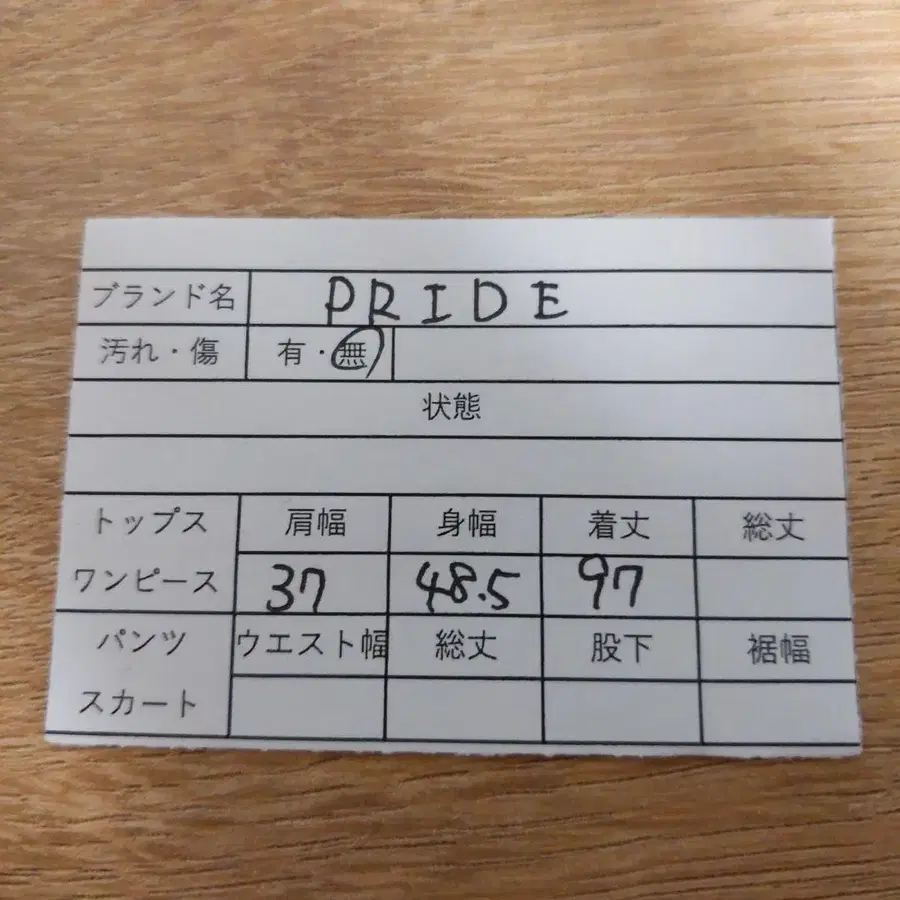 ブランド名 PRIDE
汚れ・傷 有・無
状態
トップス 肩幅 身幅 着丈 総丈
ワンピース 37 48.5 97
パンツ ウエスト幅 総丈 股下 裾幅
スカート